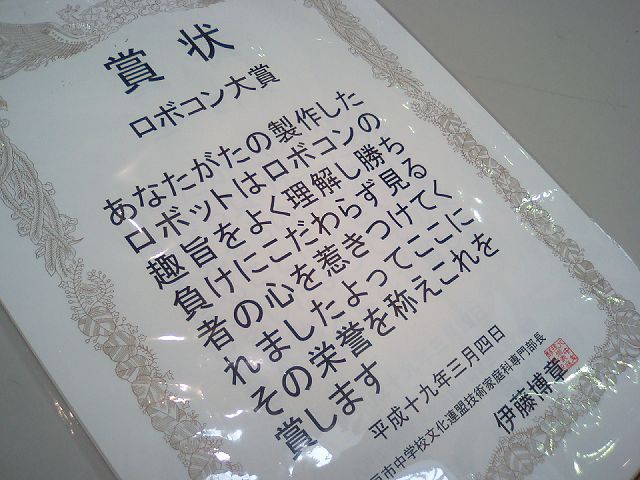 賞状
ロボコン大賞
あなたがたの製作した
ロボットはロボコンの
趣旨をよく理解し勝ち
負けにこだわらず見る
者の心を惹きつけてく
れましたよってここに
その栄誉を称えこれを
賞します
平成十九年三月四日
市中学校文化連盟技術家庭科専門部長
伊藤博章